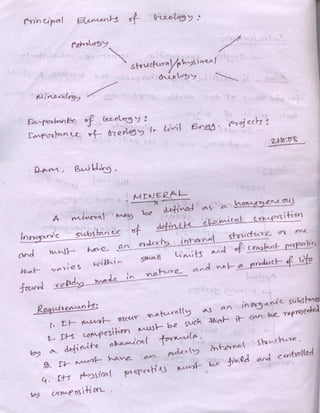 Principal Elements of Geology:
Petrology
structural/physical
Geology
Mineralogy
Importance of Geology:
Importance of Geology in Civil Engg. Projects:
Dam, Building,
MINERAL
A mineral may be defined as a homogeneous
inorganic substance of definite chemical composition
and must have an orderly internal structure or one
that varies within small limits and of constant properties
found ready made in nature and not a product of life
Requirements:
1. It must occur naturally as an inorganic substance
2. Its composition must be such that it can be represented
by a definite chemical formula.
3. It must have an orderly internal structure.
4. Its physical properties must be fixed and controlled
by composition.